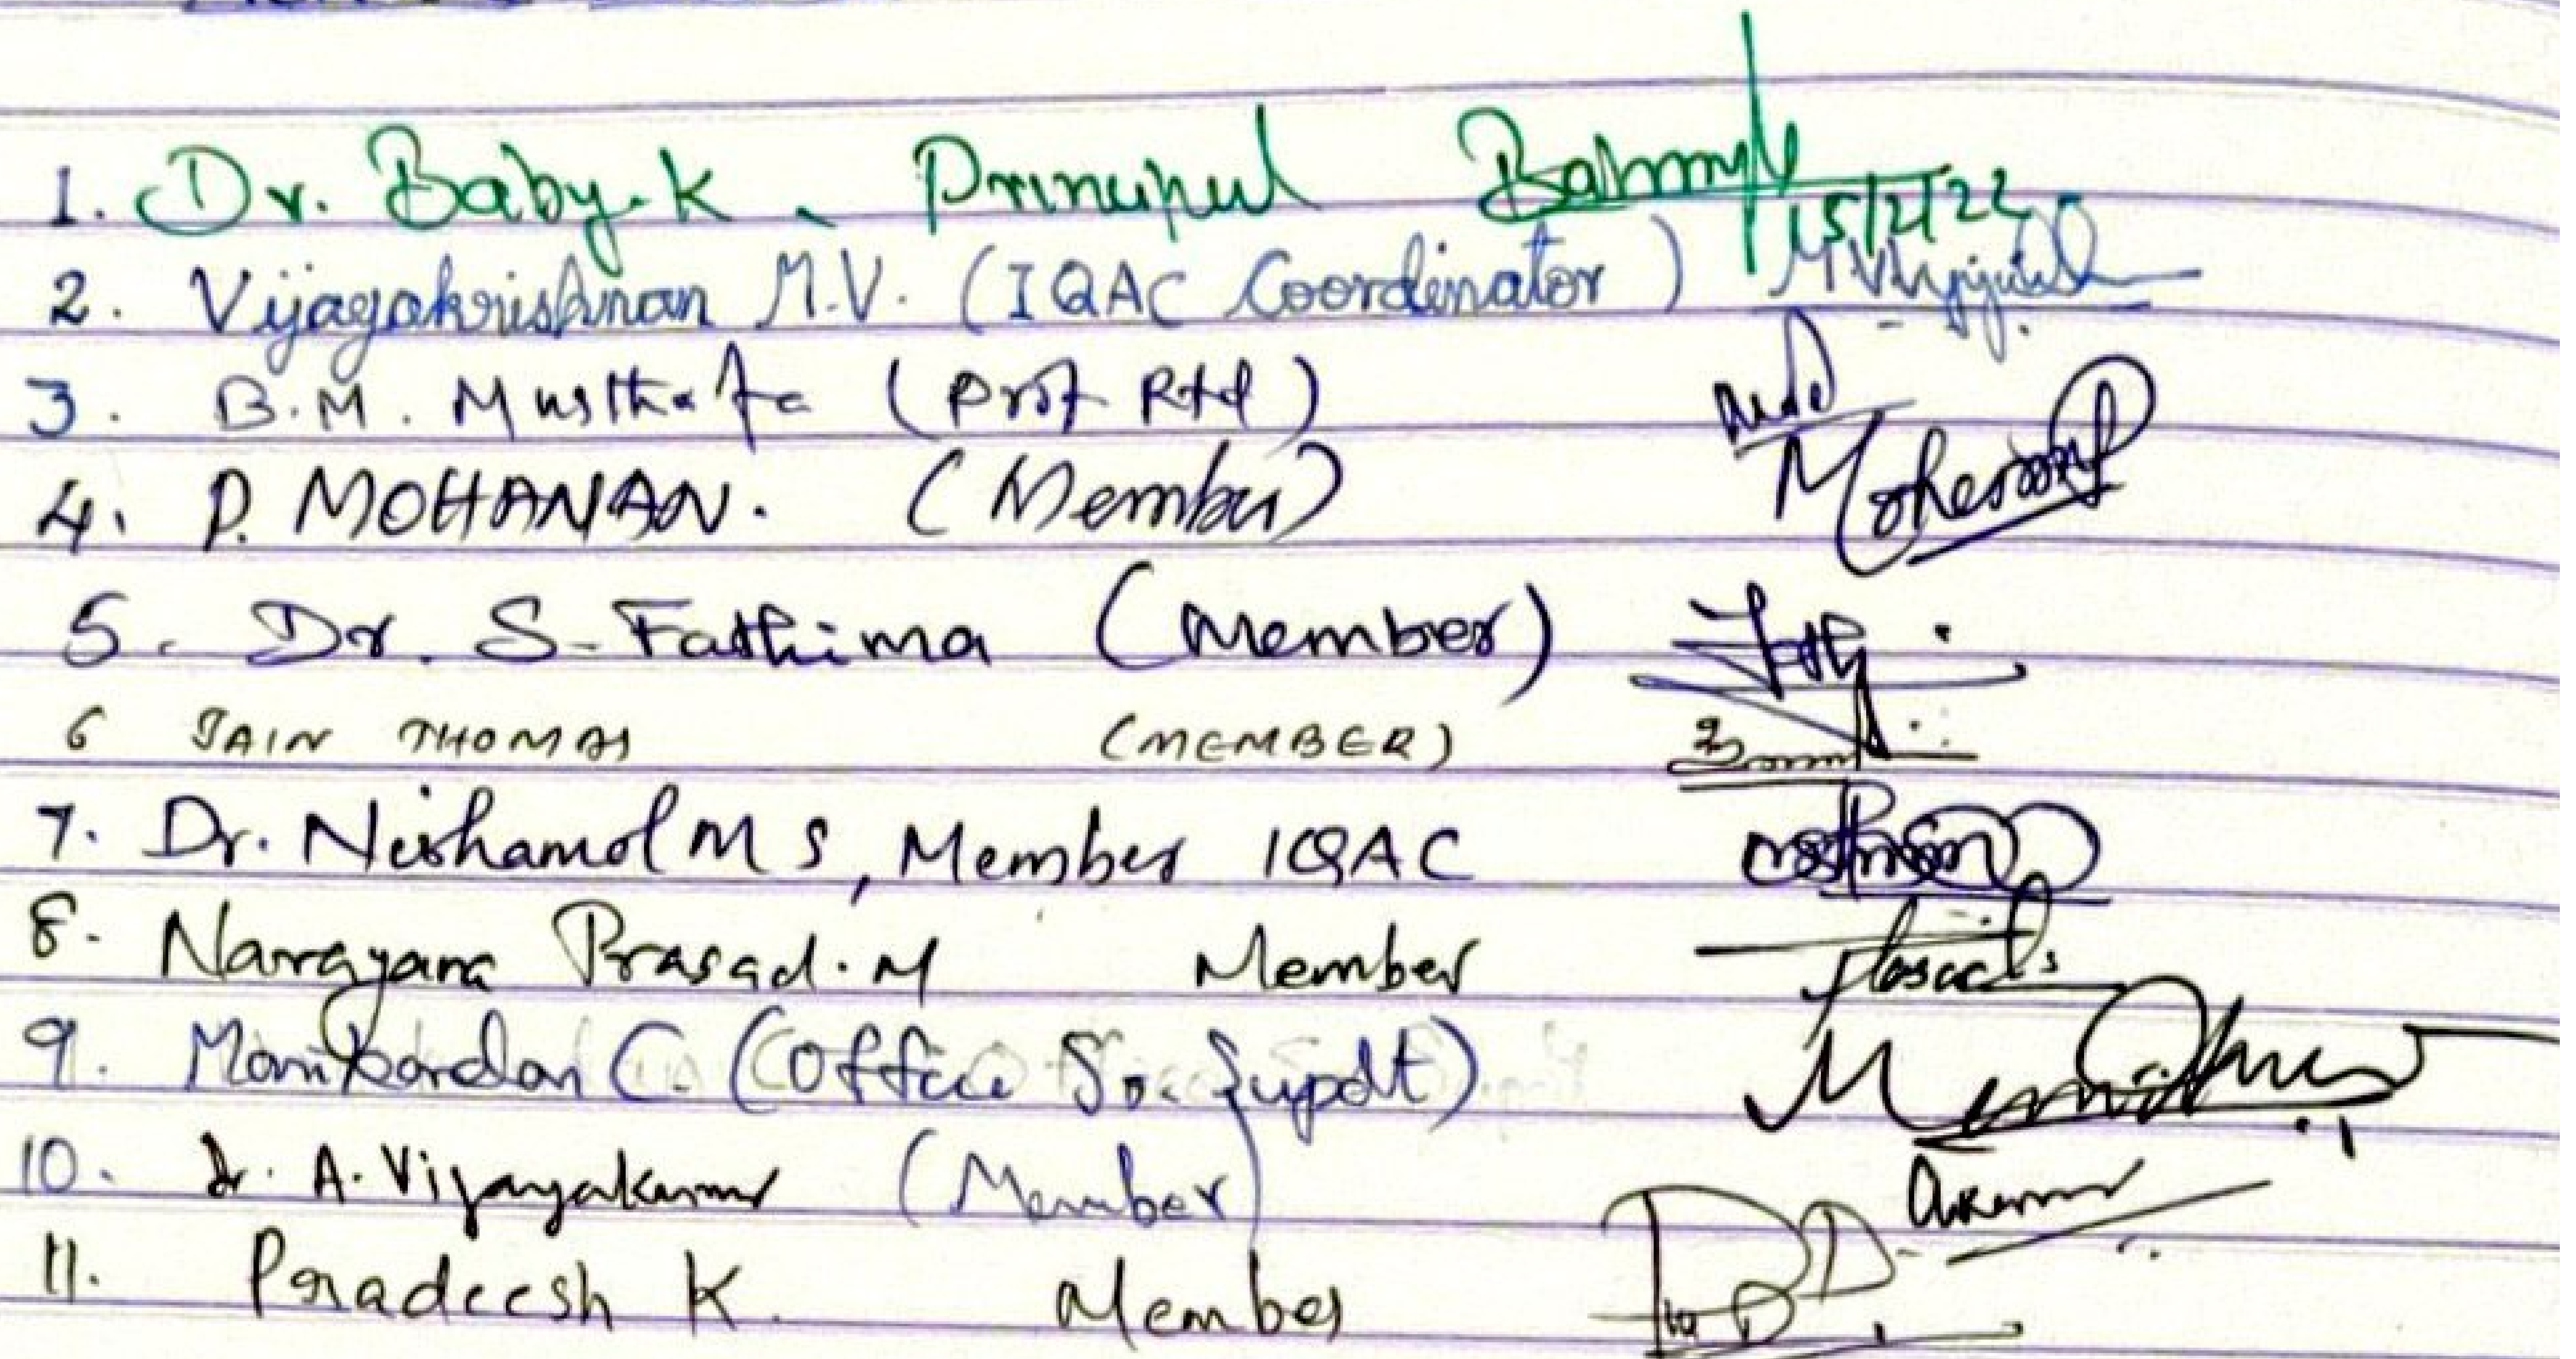 1. Dr. Baby.K. Principal 15/2/22
2. Vijayakrishnan M.V. (IQAC Coordinator)
3. B.M. Musthafa (Prof Rtd)
4. P. MOHANAN. (Member)
5. Dr. S. Fathima (Member)
6 JAIN THOMAS (MEMBER)
7. Dr. Nishamol M S, Member IQAC
8. Narayana Prasad.M Member
9. Manikandan C. (Office Sr. Supdt)
10. Dr. A. Vijayakumar (Member)
11. Pradeesh K. Member